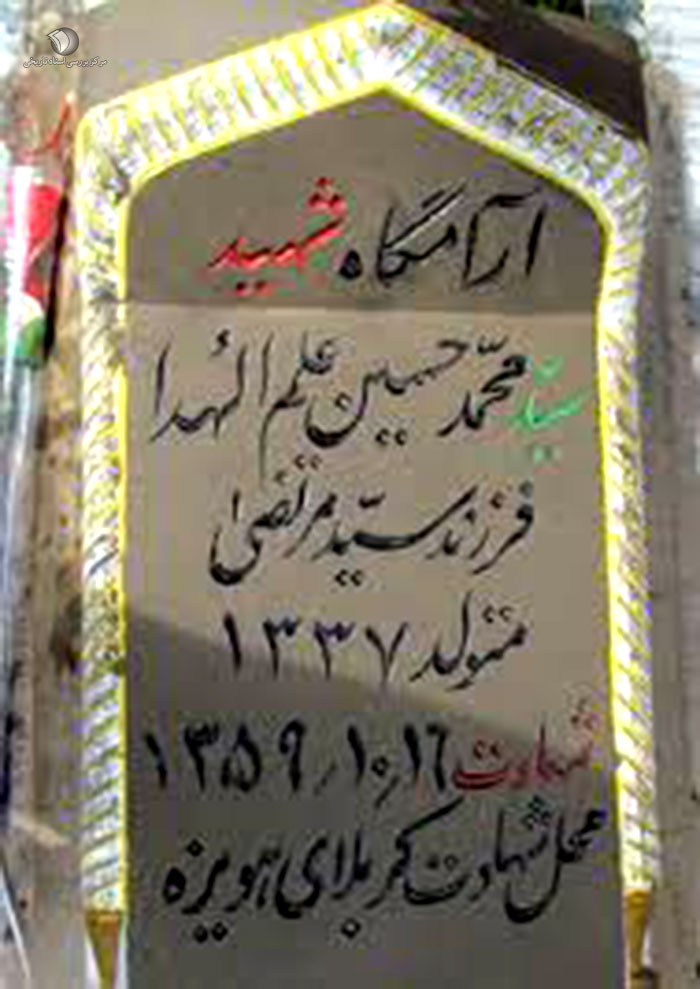 مرکز بررسی اسناد تاریخی
آرامگاه شهید
سیّد محمّد حسین علم الهُدا
فرزند سیّد مرتضی
متولد ۱۳۳۷
شهادت ۱۳۵۹٫۱۰٫۱۶
محل شهادت کربلای هویزه